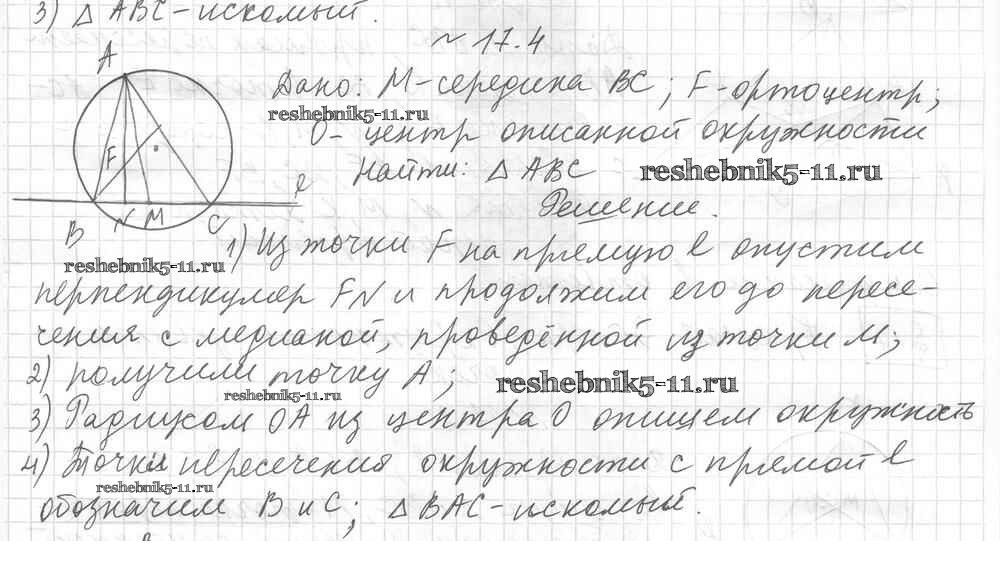 3) △ ABC - искомый.
~ 17.4
A
Дано: M - середина BC; F - ортоцентр;
reshebnik5-11.ru
O - центр описанной окружности
F
Найти: △ ABC
reshebnik5-11.ru
l
Решение.
B N M C
1) Из точки F на прямую l опустим
reshebnik5-11.ru
перпендикуляр FN и продолжим его до пересе-
чения с медианой, проведённой из точки M;
2) получили точку A;
reshebnik5-11.ru
reshebnik5-11.ru
3) Радиусом OA из центра O опишем окружность
4) Точки пересечения окружности с прямой l
reshebnik5-11.ru
обозначим B и C; △ BAC - искомый.